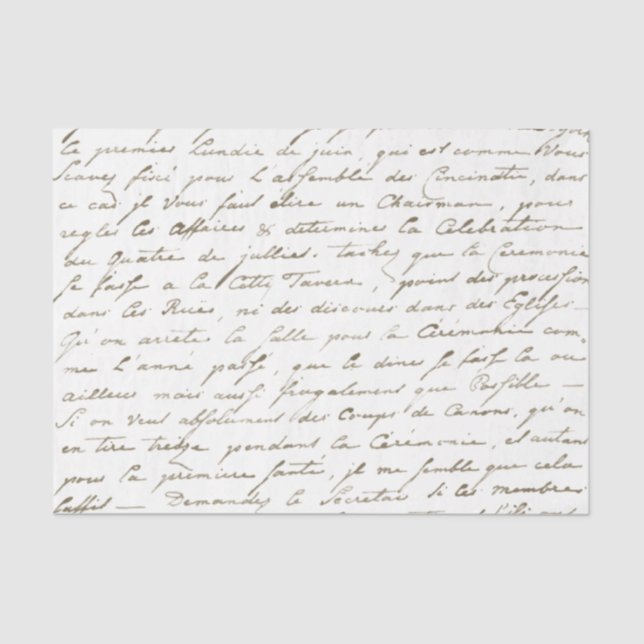 le premier Lundie de juin, qui est comme Vous
Scavez fixé pour L'assemble des Cincinati, dans
ce cas jl Vous faut elire un Chairman, pour
regles les affaires & determines la Celebration
du Quatre de jullies. taches que la Ceremonie
se fasse a la Citty Tavern, point des procession
dans les Ruës, ni des discours dans des Eglises
Qu'on arrete la Salle pour la Cérémonie com
me L'anné passé, que le dines se fasse la ou
ailleurs mais aussi frugalement que Possible —
Si on veut absolument des Coups de Canons, qu'on
en tire treize pendant la Cérémonie, et autant
pour la premiere santé, jl me semble que cela
suffit — Demandez le Secretair Si les membres